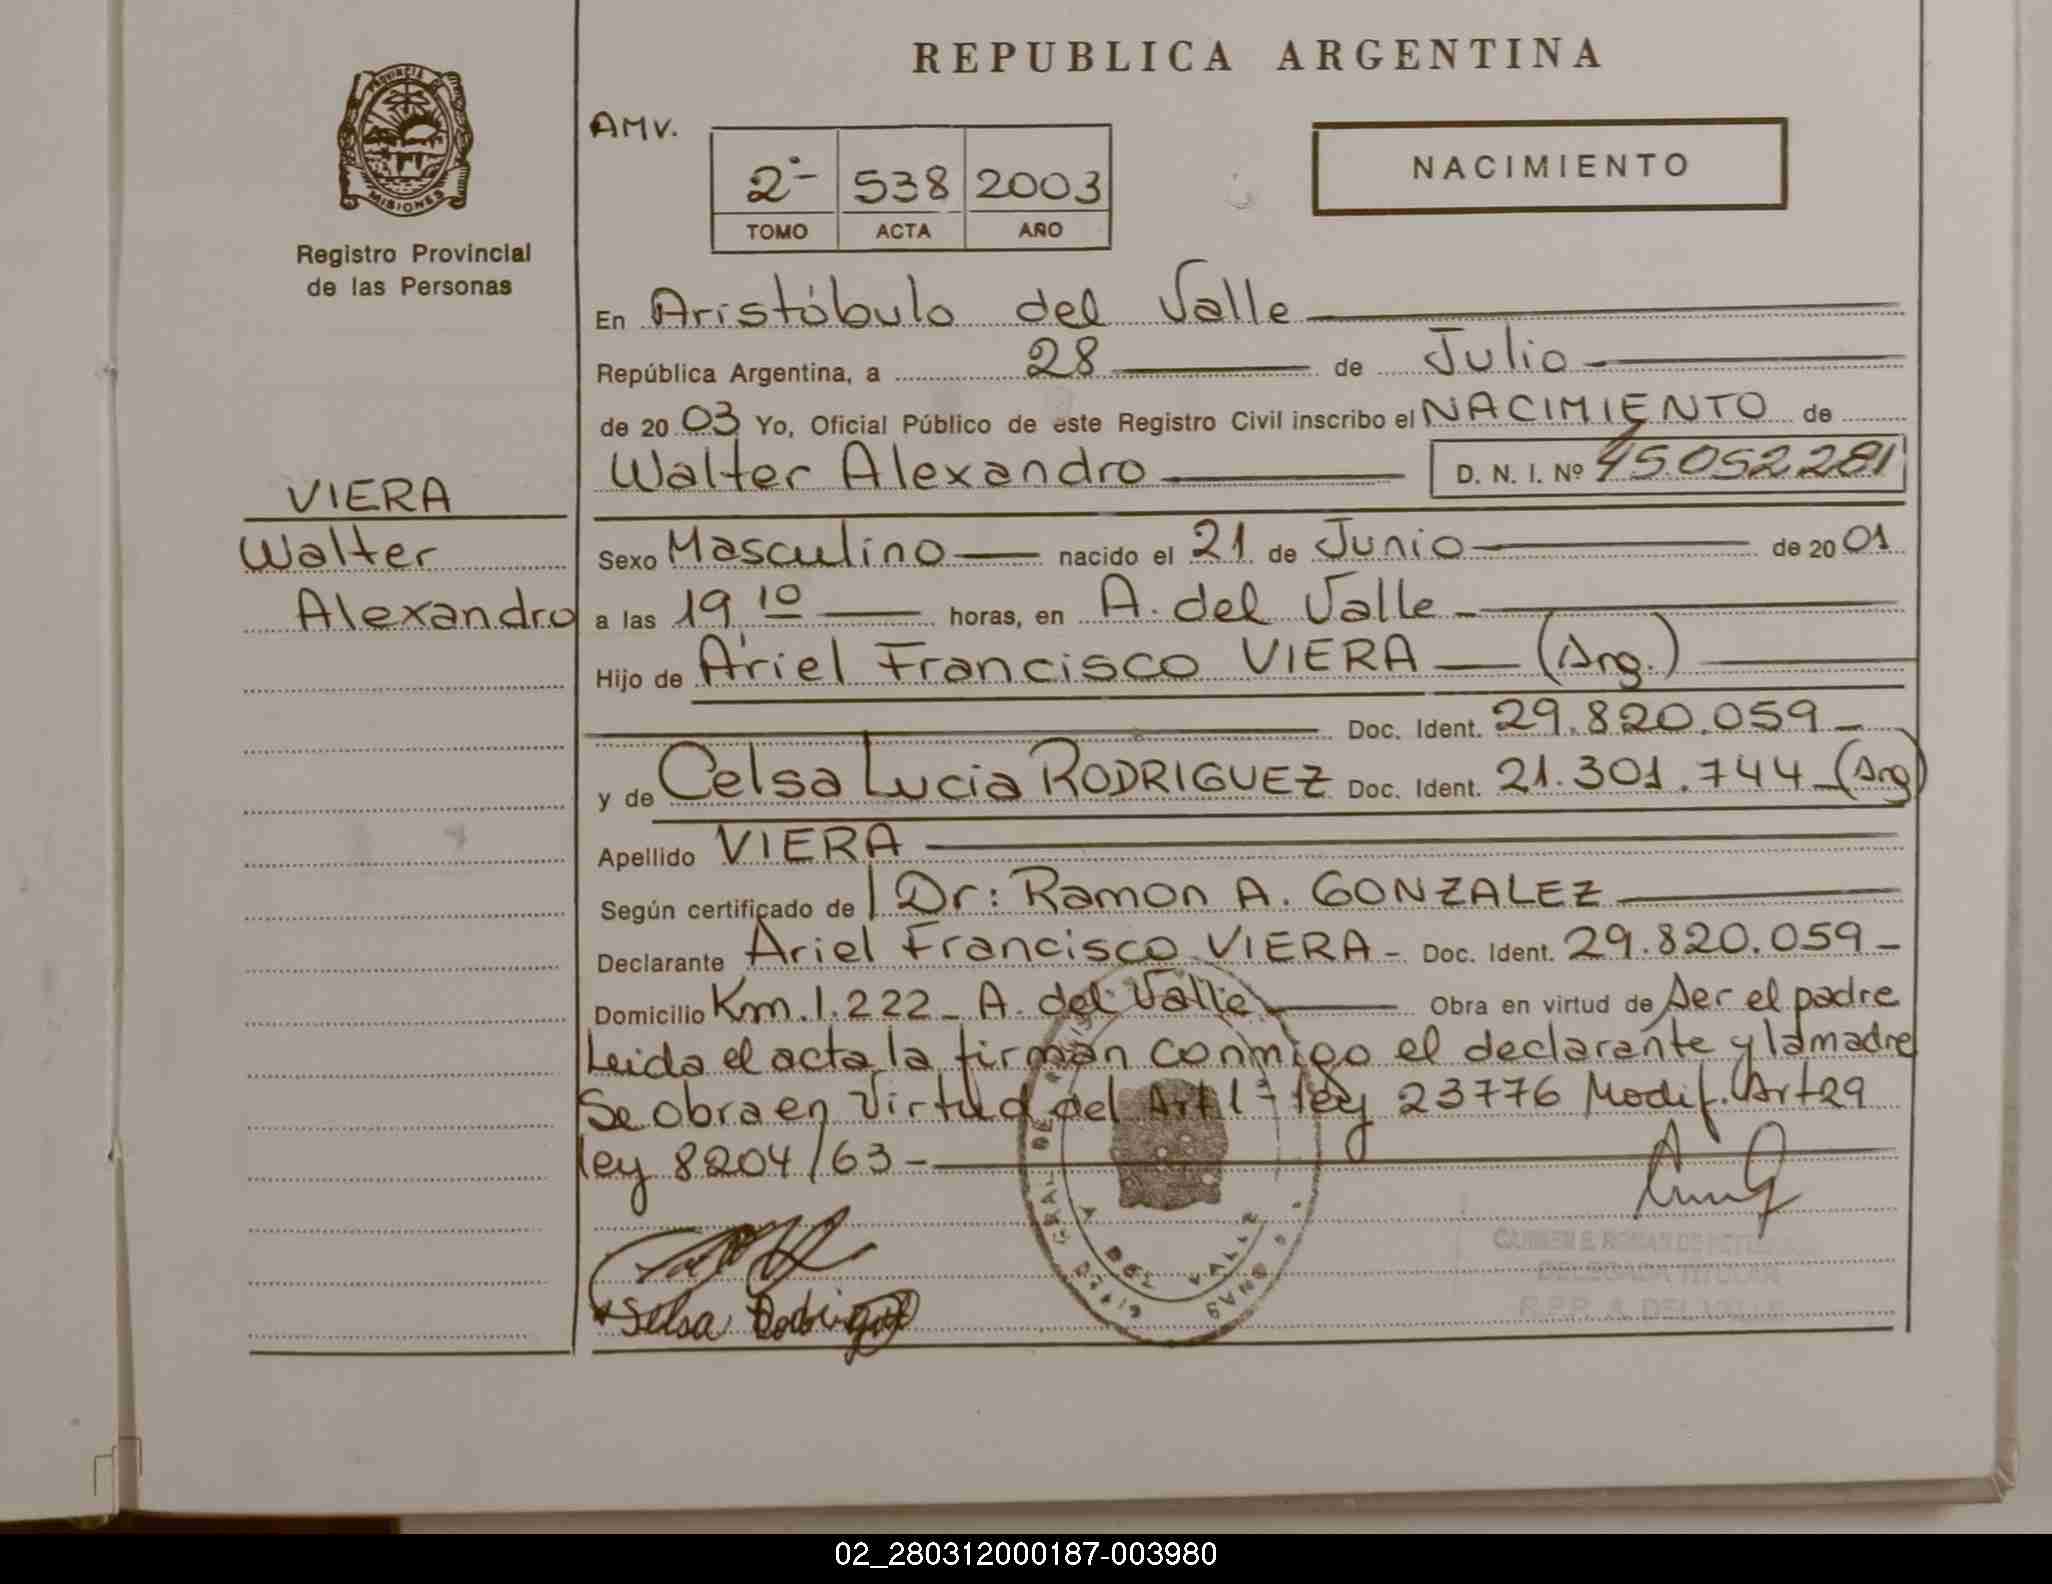 REPUBLICA ARGENTINA
PROVINCIA DE
MISIONES
Registro Provincial
de las Personas
AMV.
2º 538 2003
TOMO ACTA AÑO
NACIMIENTO
En Aristóbulo del Valle
República Argentina, a 28 de Julio
de 20 03 Yo, Oficial Público de este Registro Civil inscribo el NACIMIENTO de
Walter Alexandro D. N. I. Nº 45.052.281
VIERA
Walter
Alexandro
Sexo Masculino nacido el 21 de Junio de 20 01
a las 19 10 horas, en A. del Valle
Hijo de Ariel Francisco VIERA (Arg.)
Doc. Ident. 29.820.059
y de Celsa Lucia RODRIGUEZ Doc. Ident. 21.301.744 (Arg)
Apellido VIERA
Según certificado de Dr: Ramon A. GONZALEZ
Declarante Ariel Francisco VIERA Doc. Ident. 29.820.059
Domicilio Km. 1.222 A. del Valle Obra en virtud de ser el padre
Leida el acta la firman conmigo el declarante y la madre
Se obra en Virtud del Art 1º ley 23776 Modif. Art 29
ley 8204/63
Selsa Rodriguez
A DEL VALLE
DELEGADA TITULAR
R.P.P. A. DEL VALLE
02_280312000187-003980